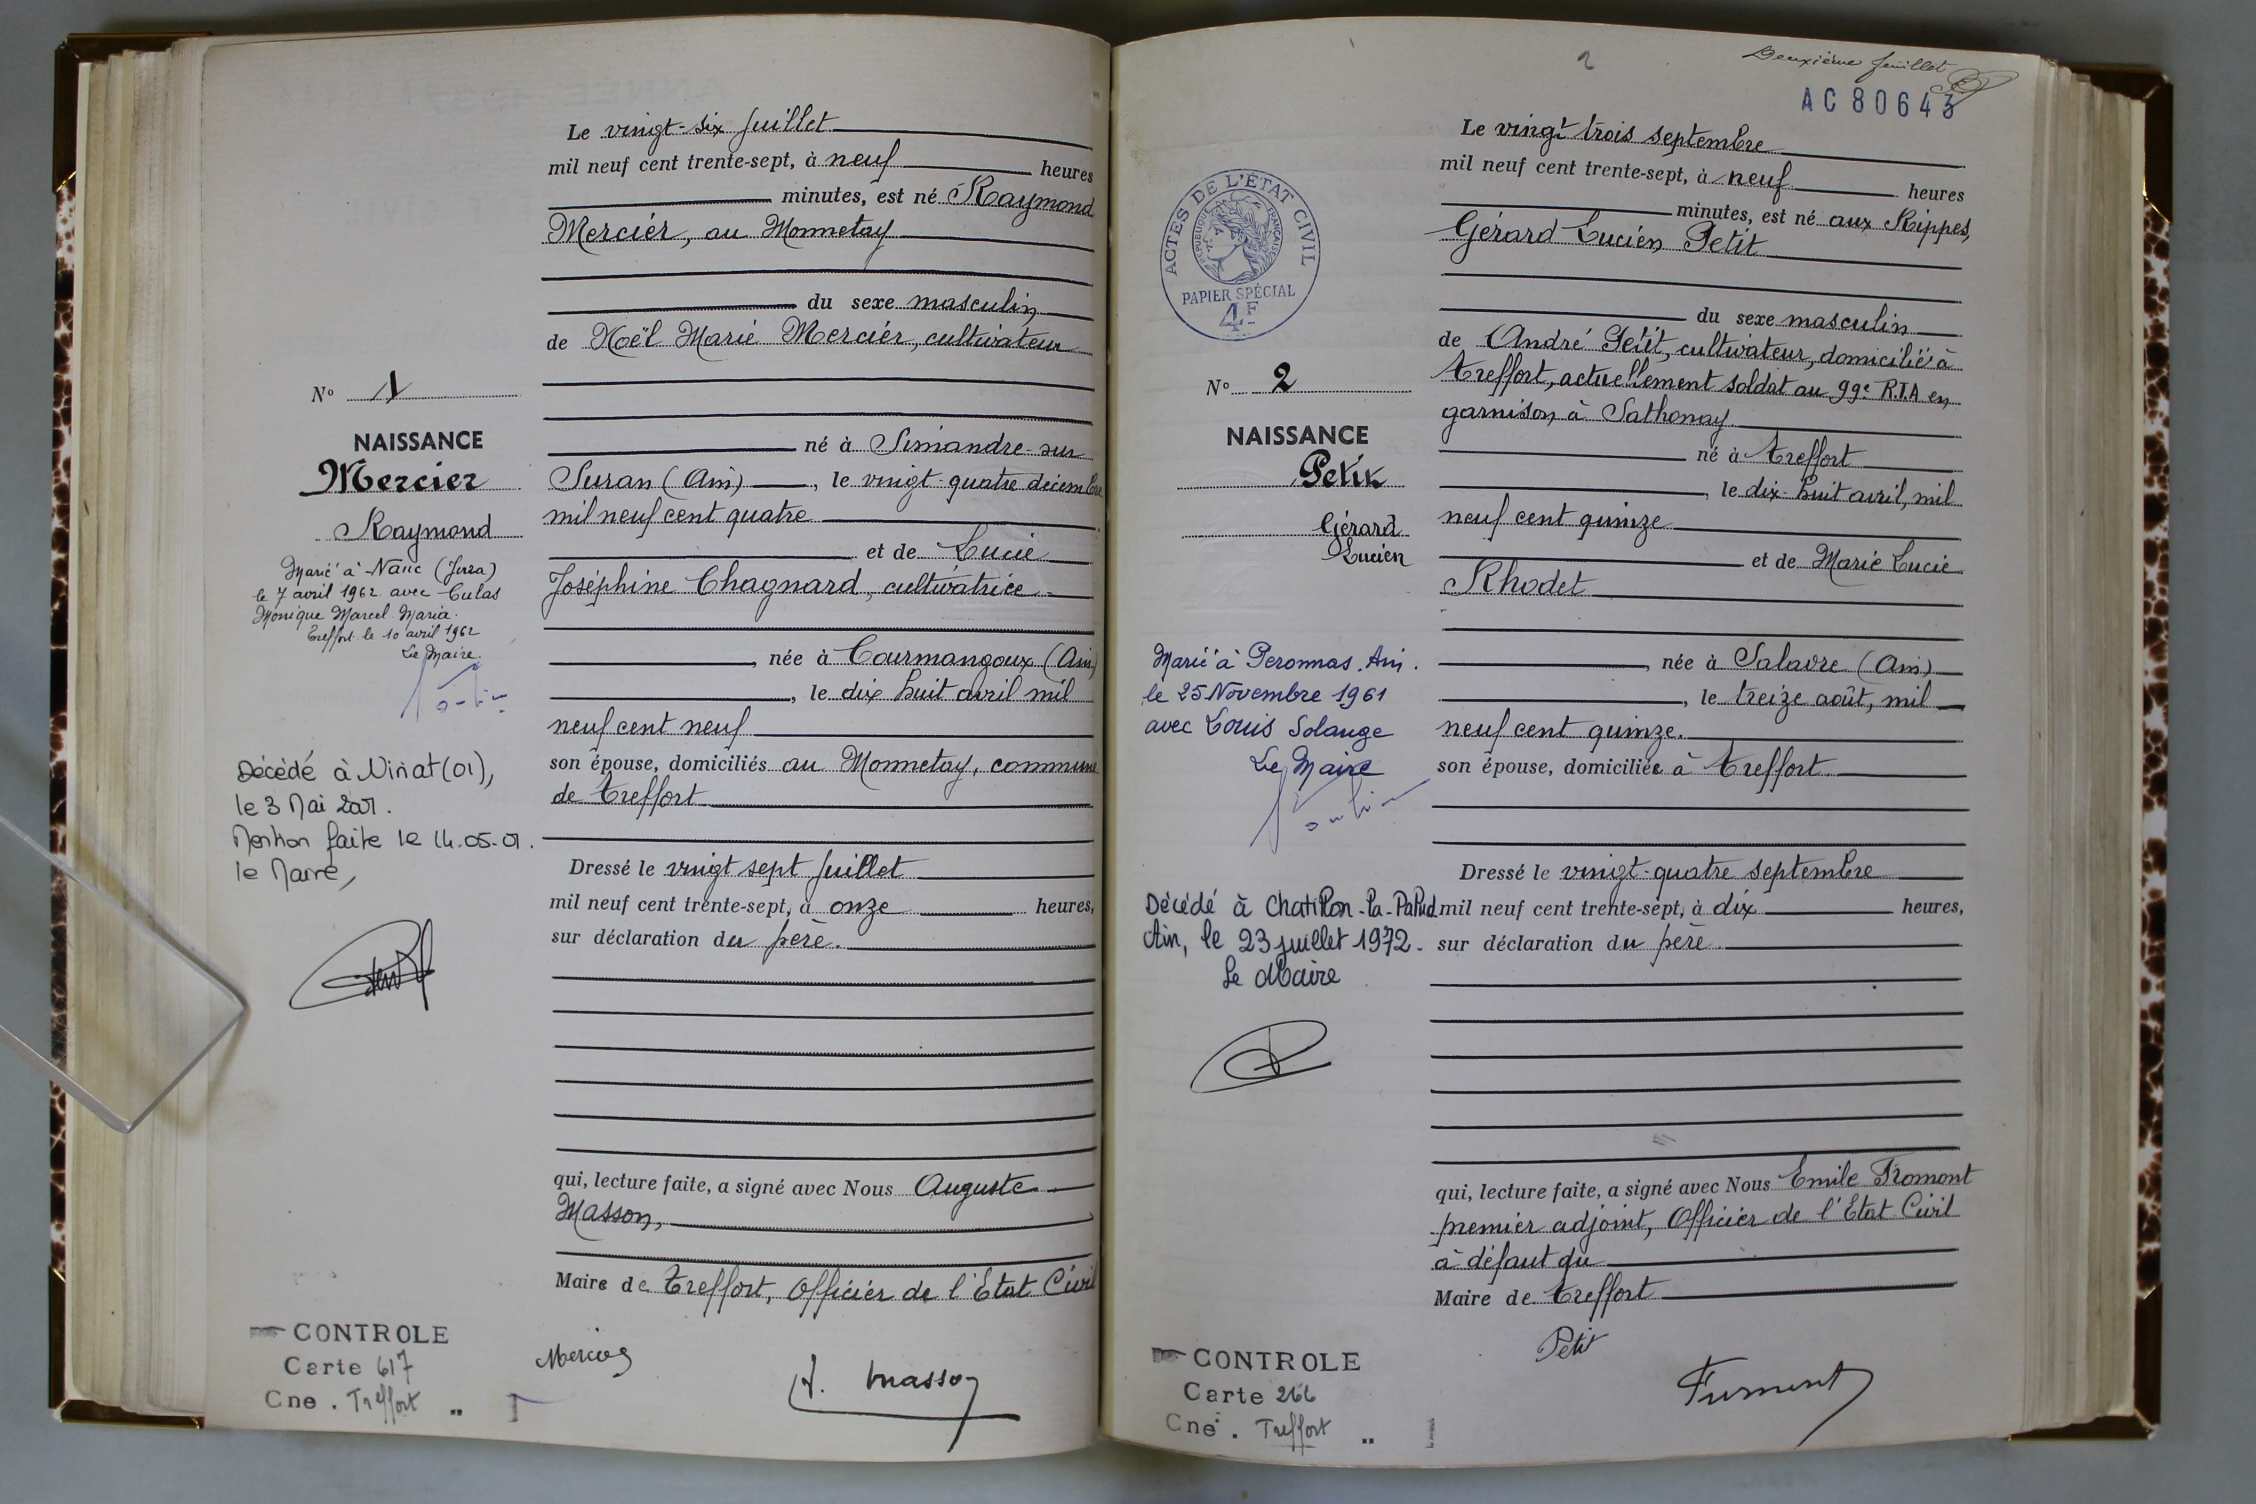 Le vingt-six juillet
mil neuf cent trente-sept, à neuf heures
minutes, est né Raymond
Mercier, au Monnetay
du sexe masculin
de Noël Marie Mercier, cultivateur
né à Simandre-sur
Suran (Ain), le vingt-quatre décembre
mil neuf cent quatre
et de Lucie
Joséphine Chagnard, cultivatrice
née à Courmangoux (Ain)
, le dix huit avril mil
neuf cent neuf
son épouse, domiciliés au Monnetay, commune
de Treffort
Dressé le vingt sept juillet
mil neuf cent trente-sept, à onze heures,
sur déclaration du père.
qui, lecture faite, a signé avec Nous Auguste
Masson,
Maire de Treffort, Officier de l'Etat Civil
Mercier
A. Masson
No 1
NAISSANCE
Mercier
Raymond
Marié à Nanc (Jura)
le 7 avril 1962 avec Culas
Monique Marcel Maria.
Treffort le 10 avril 1962
Le Maire.
Décédé à Viriat (01),
le 3 Mai 2001.
Mention faite le 14.05.01.
le Maire,
CONTROLE
Carte 617
Cne. Treffort
2
Deuxième feuillet
AC 80643
Le vingt trois septembre
mil neuf cent trente-sept, à neuf heures
minutes, est né aux Rippes,
Gérard Lucien Petit
du sexe masculin
de André Petit, cultivateur, domicilié à
Treffort, actuellement soldat au 99e R.I.A en
garnison à Sathonay.
né à Treffort
, le dix-huit avril, mil
neuf cent quinze
et de Marie Lucie
Rhodet
, née à Salavre (Ain)
, le treize août, mil
neuf cent quinze.
son épouse, domiciliée à Treffort.
Dressé le vingt-quatre septembre
mil neuf cent trente-sept, à dix heures,
sur déclaration du père.
qui, lecture faite, a signé avec Nous Emile Fromont
premier adjoint, Officier de l'Etat Civil
à défaut du
Maire de Treffort
Petit
Fromont
ACTES DE L'ÉTAT CIVIL
RÉPUBLIQUE FRANÇAISE
PAPIER SPÉCIAL
4F
No 2
NAISSANCE
Petit
Gérard
Lucien
Marié à Peronnas. Ain.
le 25 Novembre 1961
avec Louis Solange
Le Maire
Décédé à Chatillon-la-Palud
Ain, le 23 juillet 1972.
Le Maire
CONTROLE
Carte 266
Cne. Treffort